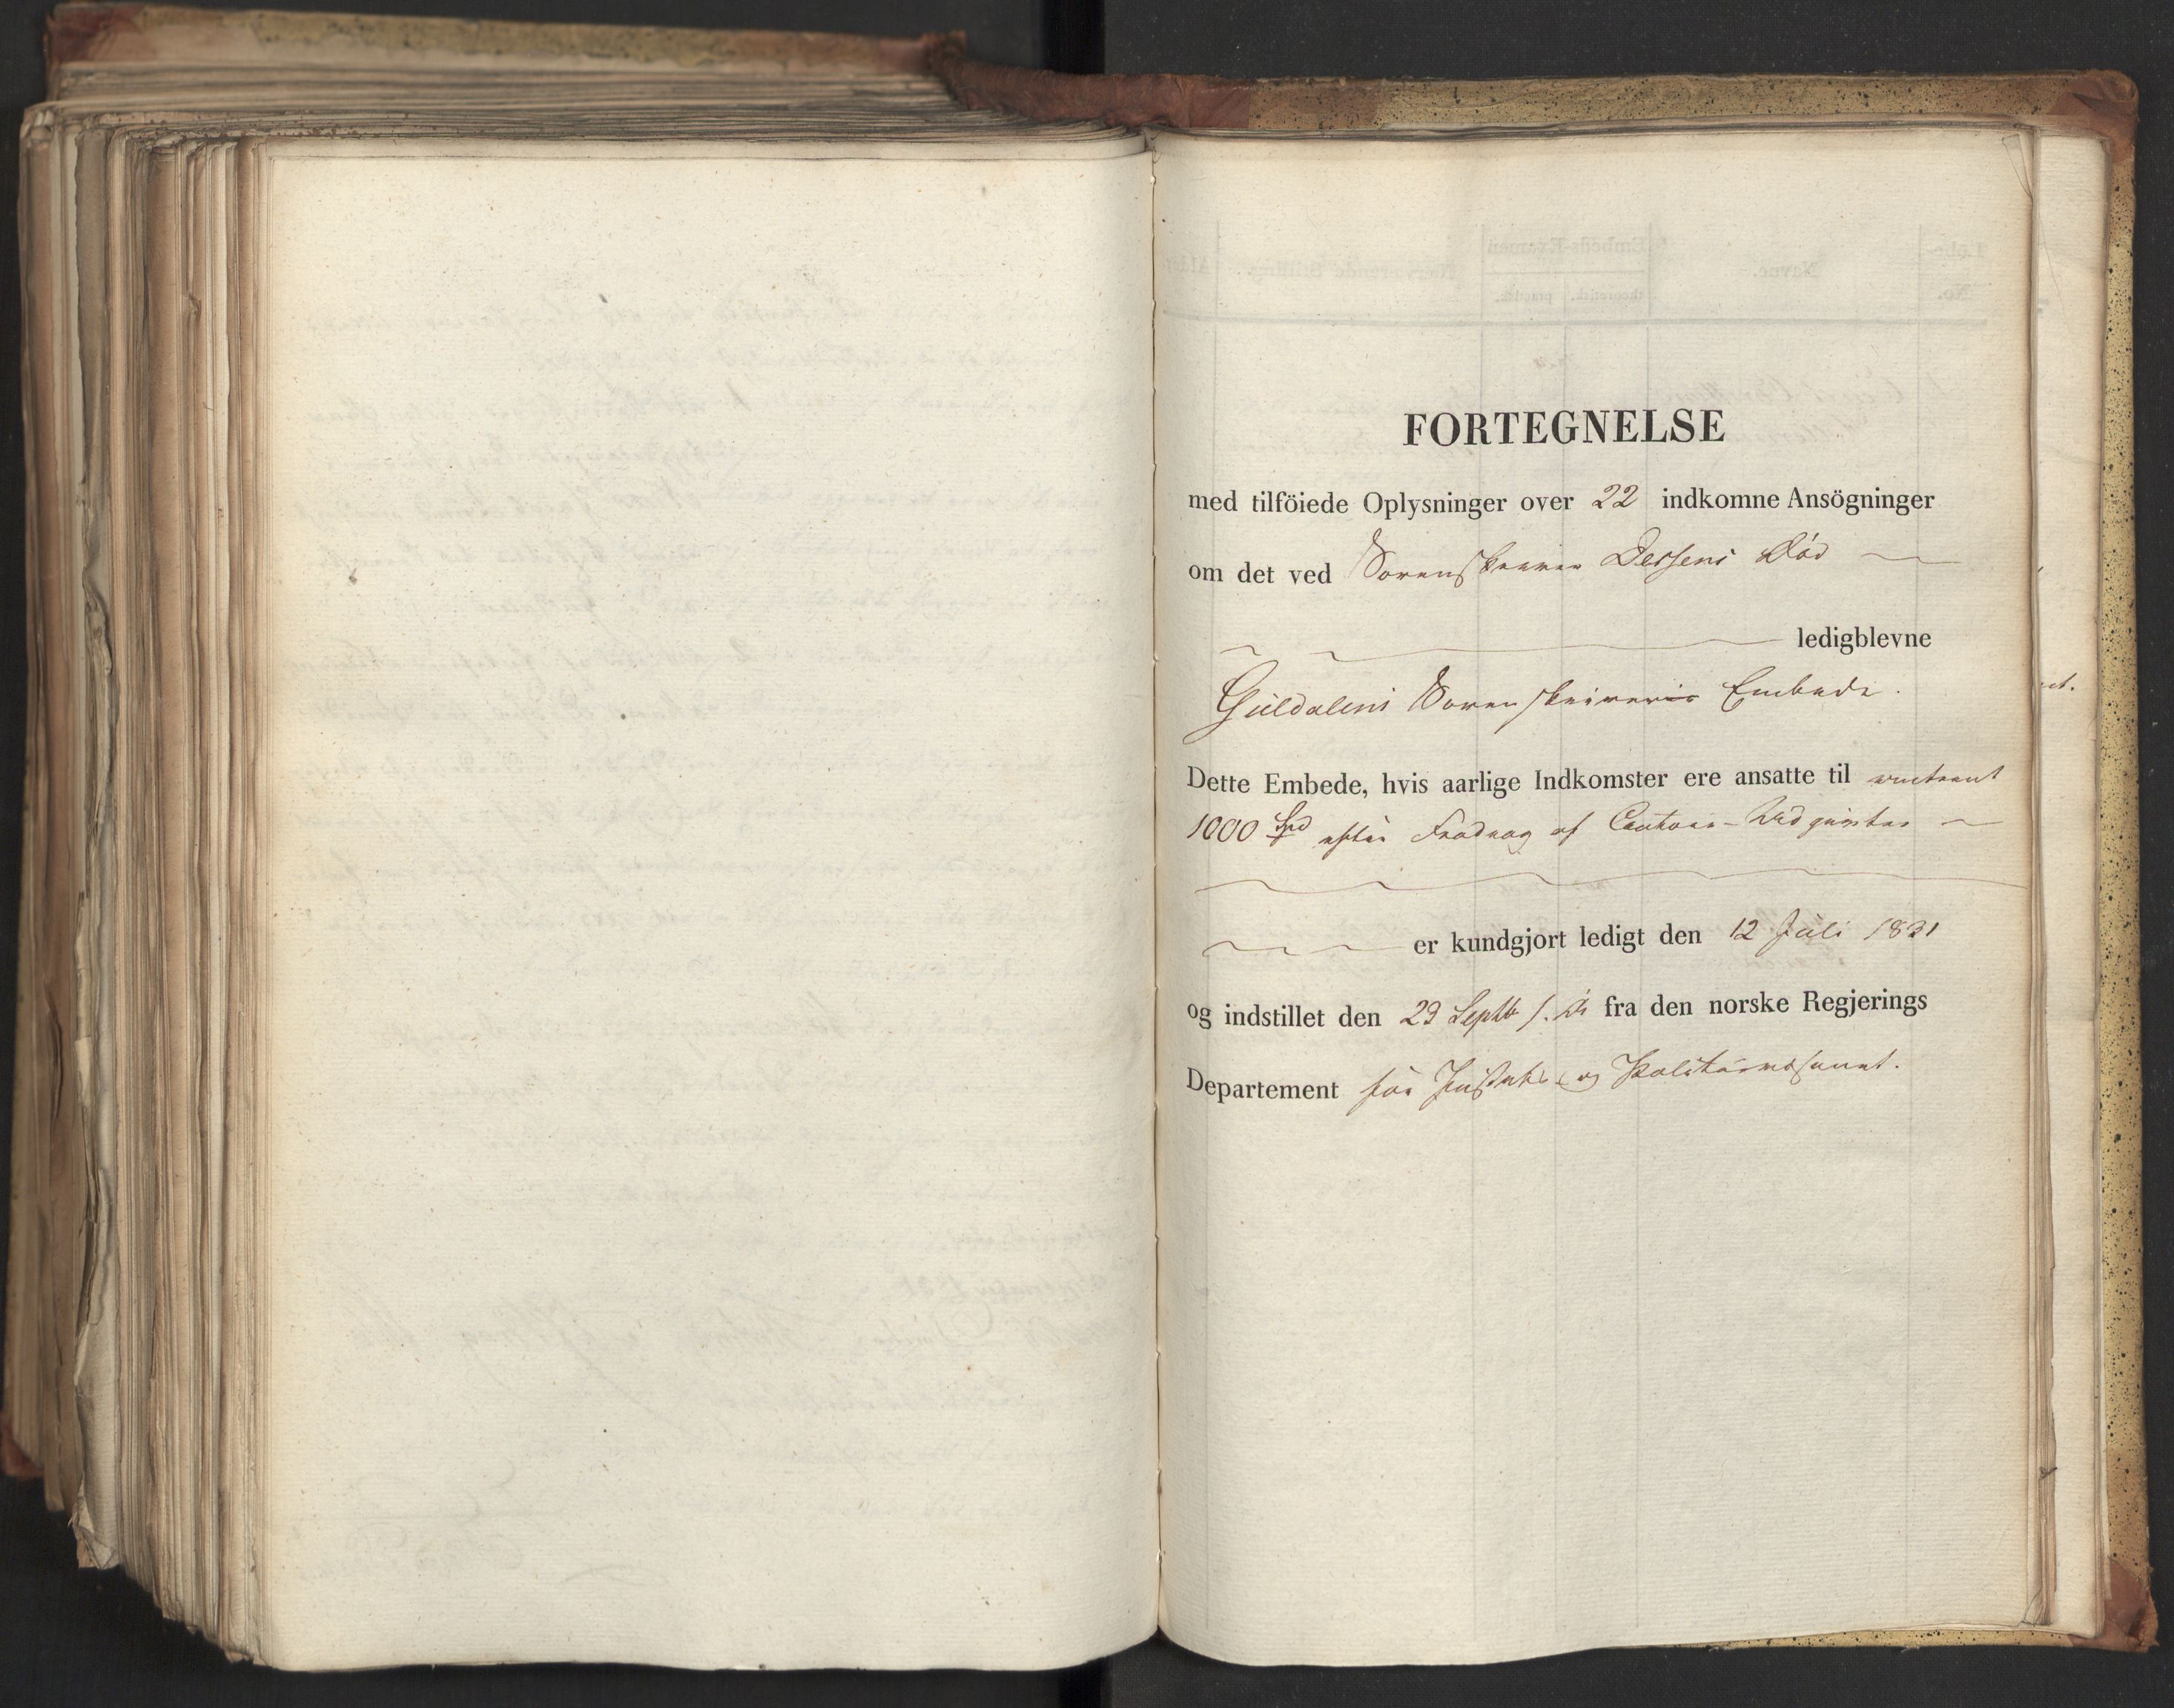 FORTEGNELSE
med tilföiede Oplysninger over 22 indkomne Ansögninger
om det ved Sorenskriver Dessens Död
ledigblevne
Guldalens Sorenskriveris Embede.
Dette Embede, hvis aarlige Indkomster ere ansatte til omtrent
1000 Spd efter Fradrag af Contoir-Udgivter
er kundgjort ledigt den 12 Juli 1831
og indstillet den 29 Septb f. A. fra den norske Regjerings
Departement for Justits- og Politievæsenet.